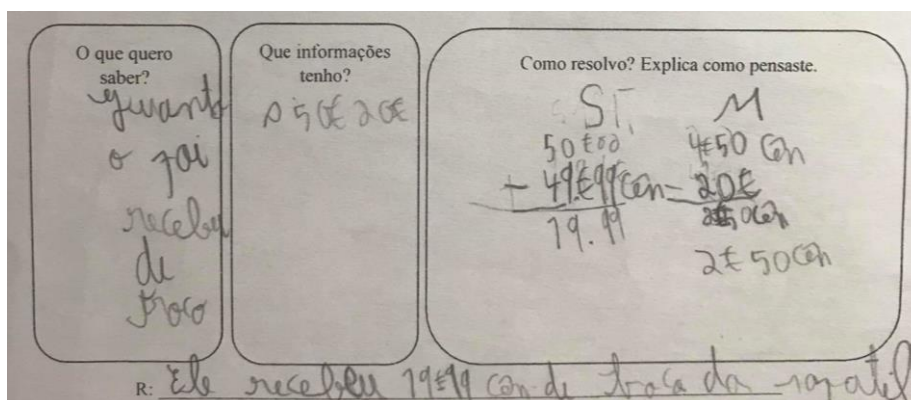 O que quero
saber?
quant
o pai
recebeu
de
troco
Que informações
tenho?
50€ 20€
Como resolvo? Explica como pensaste.
ST,
50€00
+ 49€99cen
19.99
M
4€50 Cen
- 20€
2€50Cen
2€50Cen
R: Ele recebeu 19€99 cen de troca da